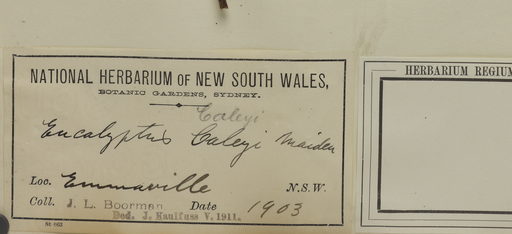 NATIONAL HERBARIUM OF NEW SOUTH WALES,
BOTANIC GARDENS, SYDNEY.
Caleyi
Eucalyptus Caleyi Maiden
Loc. Emmaville N.S.W.
Coll. J. L. Boorman Date 1903
Ded. J. Kaulfuss V. 1911.
St 663
HERBARIUM REGIUM